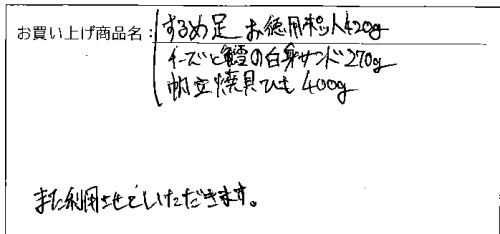 お買い上げ商品名：するめ足 お徳用ポット420g
チーズと鱈の白身サンド270g
帆立焼貝ひも 400g
また利用させていただきます。